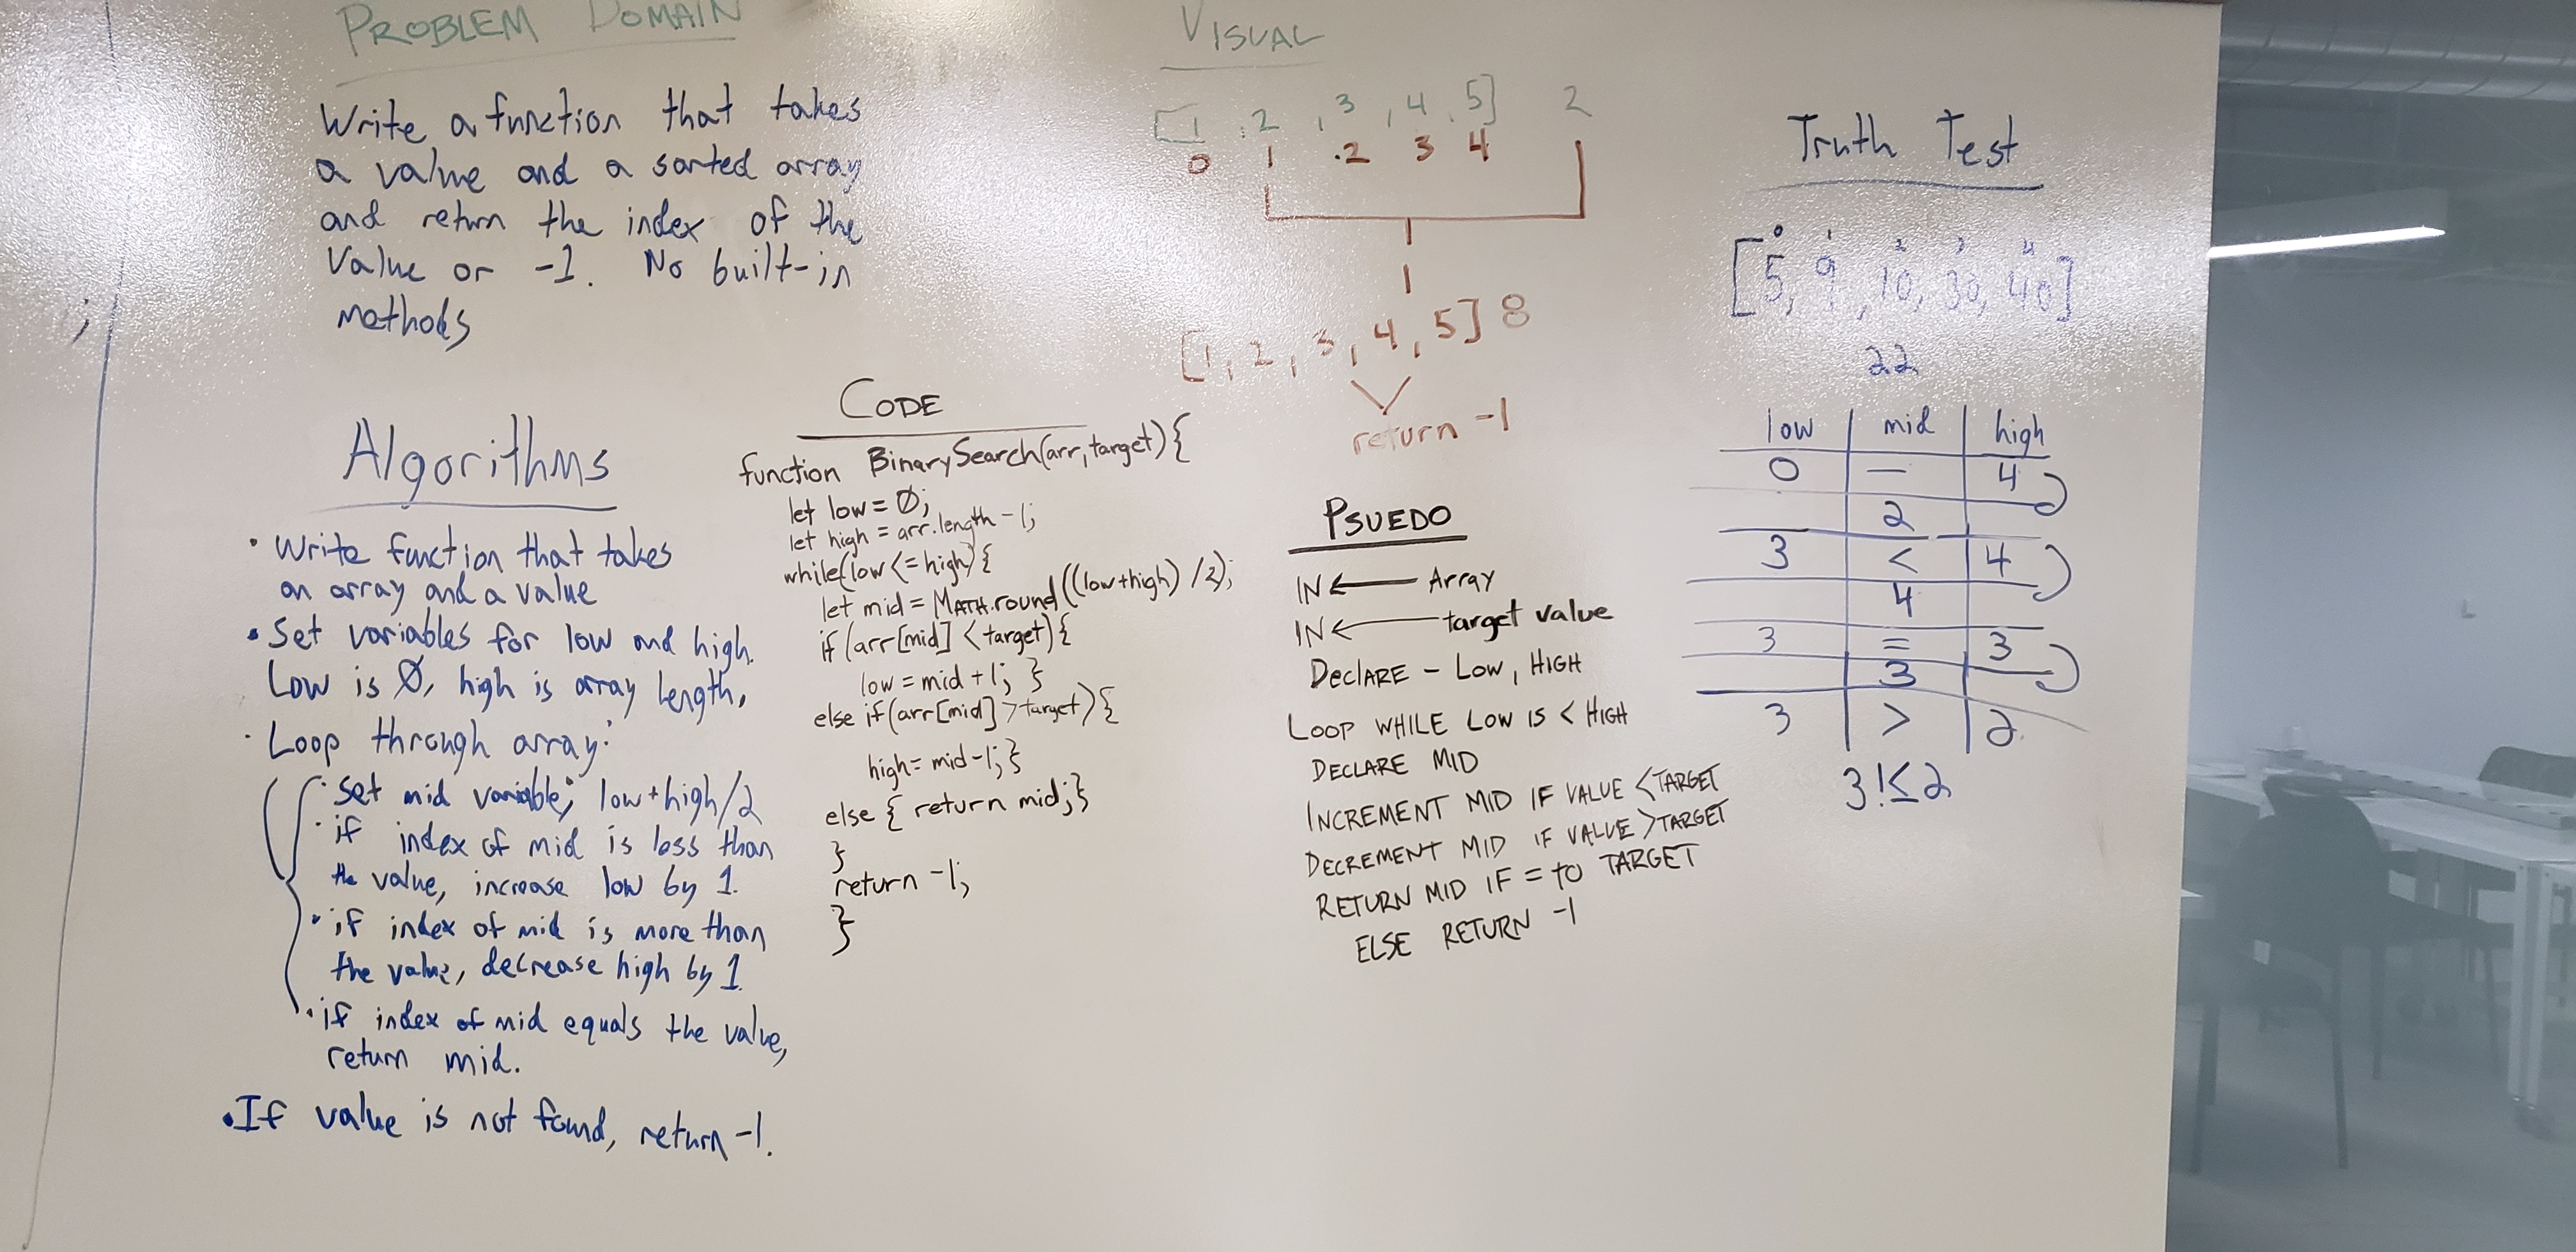 PROBLEM DOMAIN
Write a function that takes
a value and a sorted array
and return the index of the
Value or -1. No built-in
methods
;
Algorithms
• Write function that takes
an array and a value
• Set variables for low and high.
Low is Ø, high is array length.
• Loop through array:
• Set mid variable; low+high/2
• if index of mid is less than
the value, increase low by 1.
• if index of mid is more than
the value, decrease high by 1
• if index of mid equals the value,
return mid.
• If value is not found, return -1.
CODE
function BinarySearch(arr, target) {
let low = Ø;
let high = arr.length - 1;
while(low <= high) {
let mid = MATH.round((low+high) /2);
if (arr[mid] < target) {
low = mid + 1; }
else if (arr[mid] > target) {
high = mid - 1; }
else { return mid; }
}
return -1;
}
VISUAL
[1, 2, 3, 4, 5] 2
0 1 2 3 4
1
[1, 2, 3, 4, 5] 8
return -1
PSUEDO
IN ← Array
IN ← target value
DECLARE - LOW, HIGH
LOOP WHILE LOW IS < HIGH
DECLARE MID
INCREMENT MID IF VALUE < TARGET
DECREMENT MID IF VALUE > TARGET
RETURN MID IF = to TARGET
ELSE RETURN -1
Truth Test
0 1 2 3 4
[5, 9, 10, 30, 40]
22
low mid high
0 — 4
2
3 < 4
4
3 = 3
3
3 > 2
3 !≤ 2